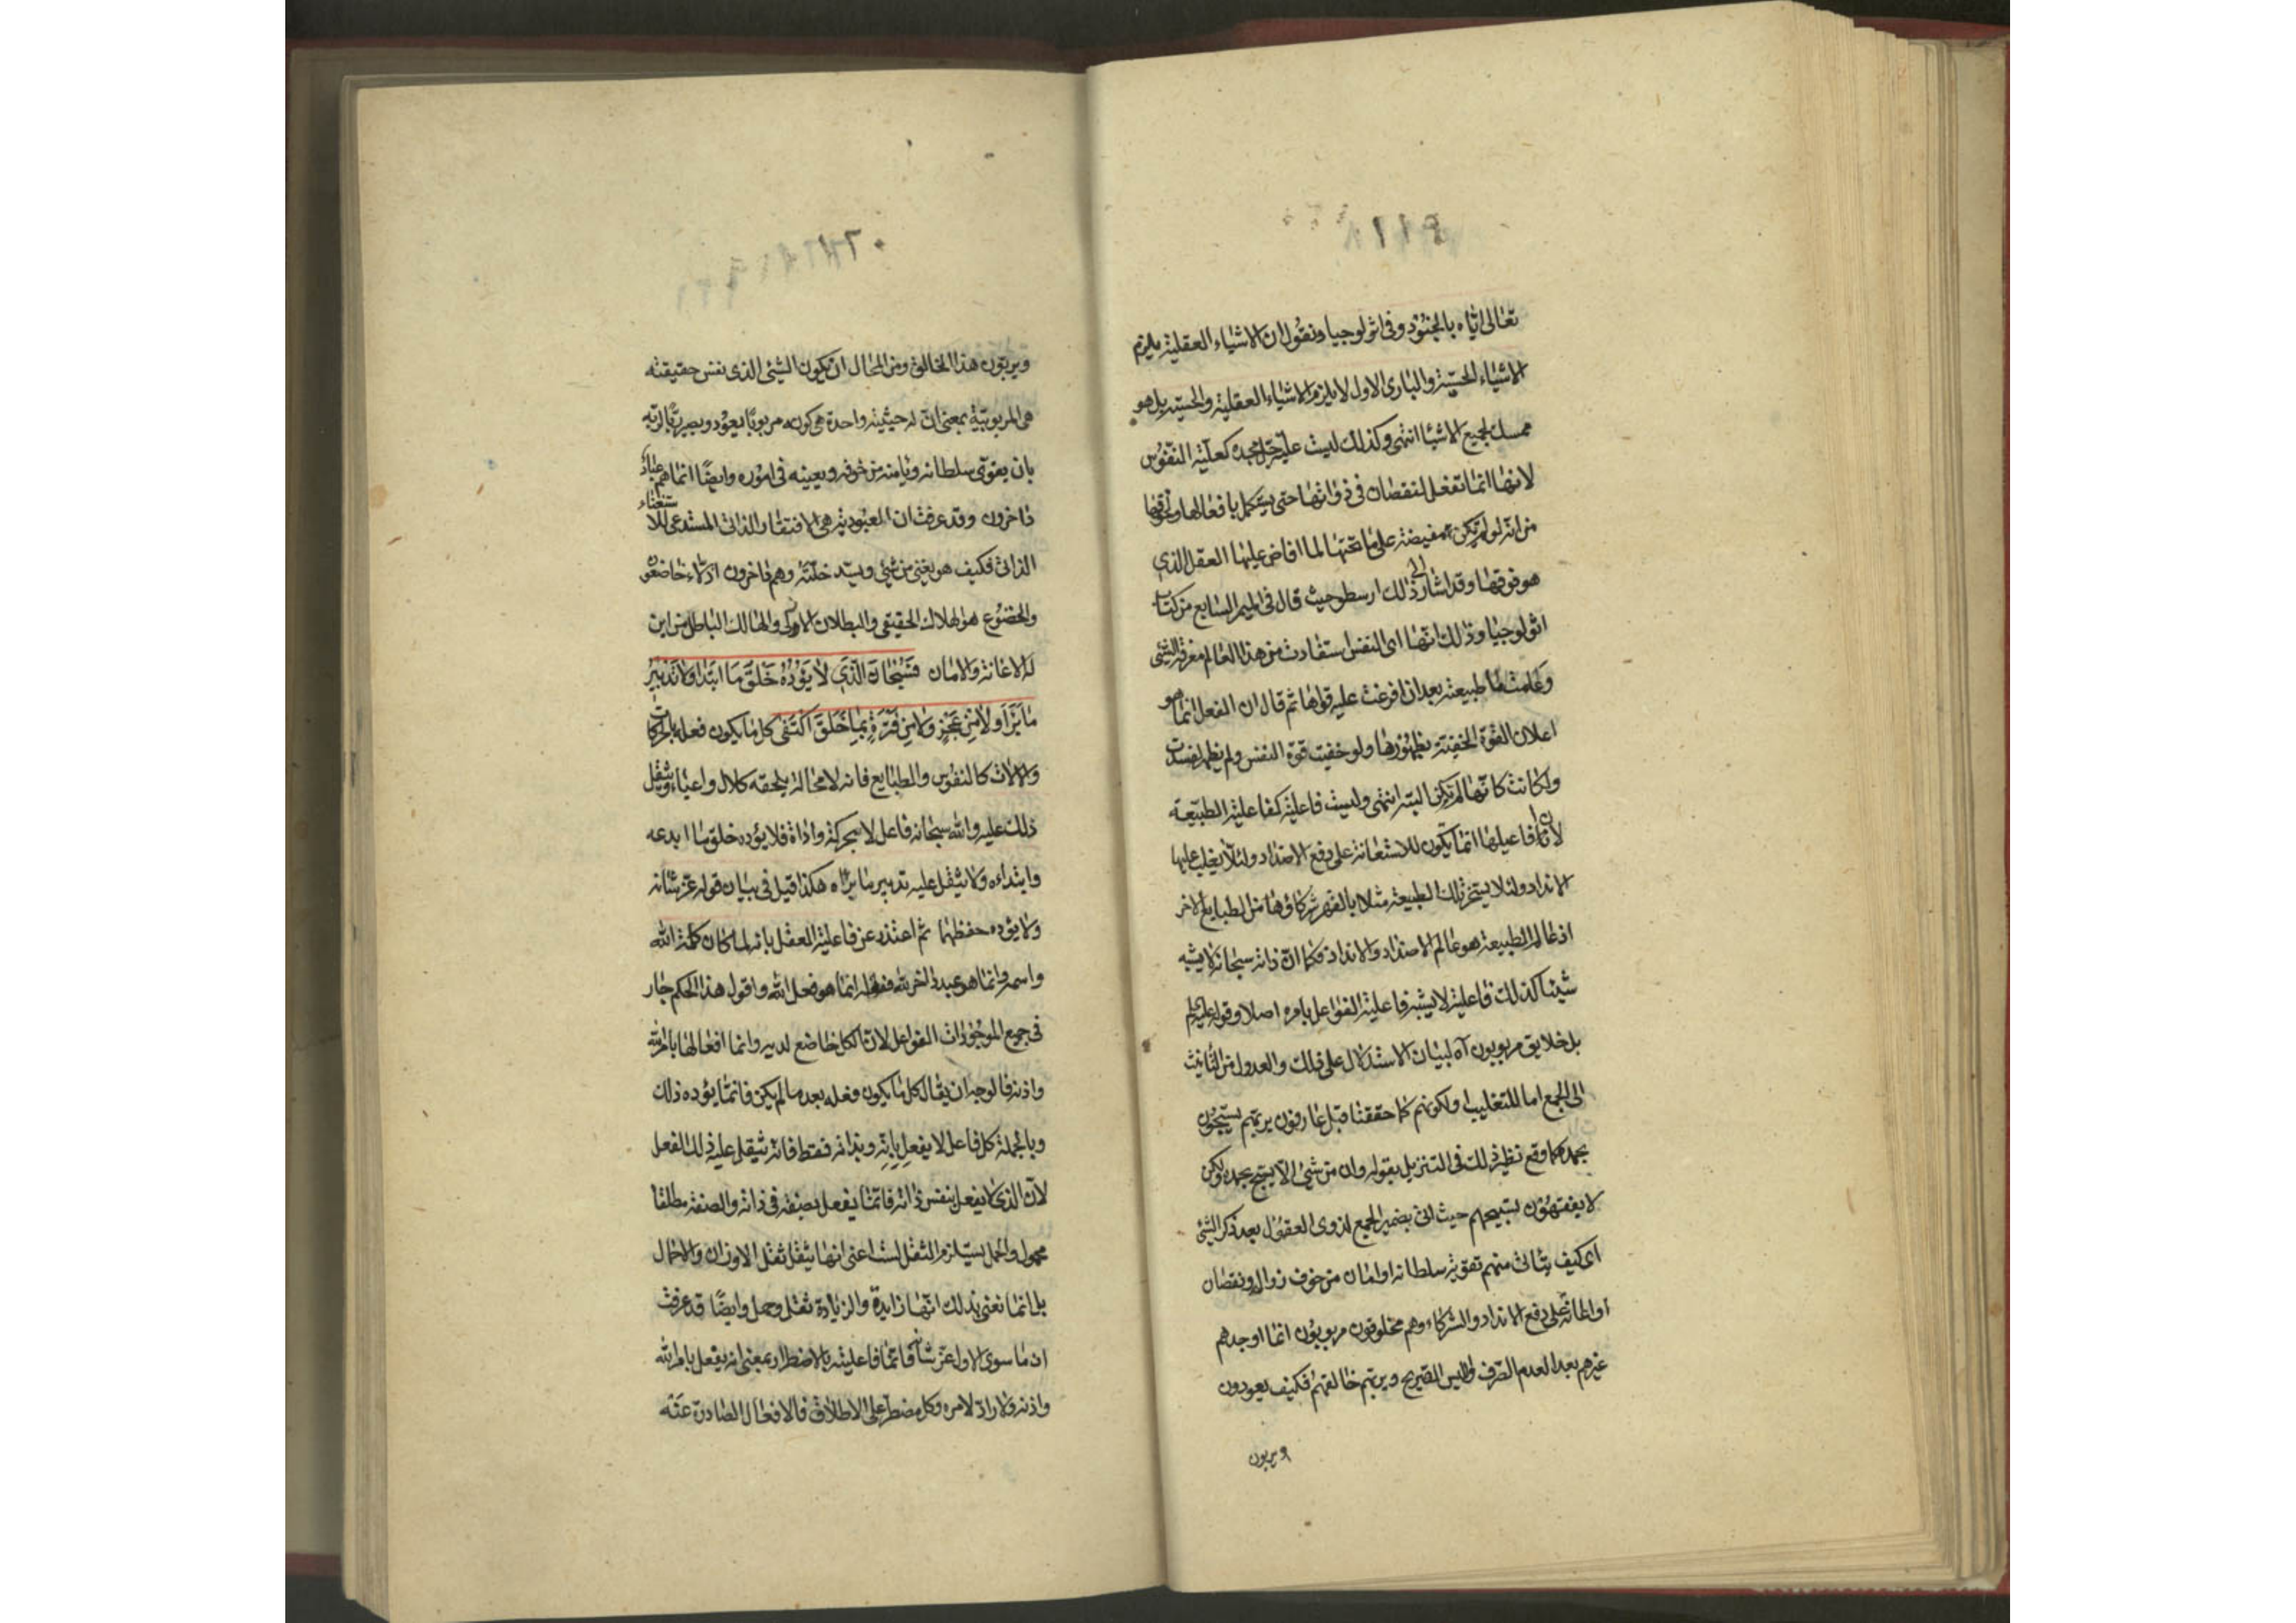 تعالى اياه بالجنود وفى اثولوجيا ونقول ان الاشياء العقلية يلزم
الاشياء الحسية والبارى الاول لا يلزم الاشياء العقلية والحسية بل هو
ممسك لجميع الاشيا انتهى وكذلك ليست علية جل مجده كعلية النفوس
لانها انما تفعل لنقصان فى ذواتها حتى يستكمل بافعالها
من انه لو لم تكن مفيضة على ما تحتها لما افاض عليها العقل الذي
هو فوقها وقد اشار الى ذلك ارسطو حيث قال فى الميمر السابع من كتاب
اثولوجيا وذلك انها اى النفس استفادت من هذا العالم معرفة الشئى
وعلمت ما طبيعته بعد ان افرغت عليه قواها ثم قال ان الفعل انما هو
اعلان القوة الخفية بظهورها ولو خفيت قوة النفس ولم يظهر لفسدت
ولكانت كانها لم تكن البتة انتهى وليست فاعلية كفاعلية الطبيعة
لان افاعيلها انما يكون للاستعانة على دفع الاضداد ولئلا يغلب عليها
الانداد ولئلا يستخر تلك الطبيعة مثلا بالقهر شركاؤها من الطبايع الاخر
اذ عالم الطبيعة هو عالم الاضداد والانداد فكما ان ذاته سبحانه لا يشبه
شيئا كذلك فاعلية لا يشبه فاعلية الفواعل بامره اصلا وقوله عليه السلم
بل خلايق مربوبون آه لبيان الاستدلال على ذلك والعدول من التانيث
الى الجمع اما للتغليب او لكونهم كما حققنا قبل عارفون بربهم يسبحون
بحمده كما وقع نظير ذلك فى التنزيل بقوله وان من شئى الا يسبح بحمده ولكن
لا يفقهون تسبيحهم حيث اتى بضمير الجمع لذوى العقول بعد ذكر الشئى
اى كيف يتاتى منهم تقوية سلطانه او امان من خوف زوال ونقصان
او اعانة على دفع الانداد والشركاء وهم مخلوقون مربوبون انما اوجدهم
غيرهم بعد العدم الصرف والليس الصريح ويربهم خالقهم فكيف يعودون
ويربون
ويربون هذا الخالق ومن المحال ان يكون الشئى الذى نفس حقيقته
هى المربوبية بمعنى ان له حيثية واحدة هى كونه مربوبا يعود ويصير ربا لربه
بان يقوى سلطانه ويامنه من خوفه ويعينه فى اموره وايضا انما هم عباد
داخرون وقد عرفت ان العبودية هى الافتقار الذاتى المستدعى للاستغناء
الذاتى فكيف هو يغنى من شئى ويسد خلته وهم داخرون اذلاء خاضعون
والخضوع هو الهلاك الحقيقى والبطلان الاولى والهالك الباطل من اين
له الاعانة والامان فسبحان الذي لا يؤده خلق ما ابتدا ولا تدبير
ما برا ولا من عجز ولا من فترة بما خلق اكتفى كل ما يكون فعله بالحركات
والالات كالنفوس والطبايع فانه لا محالة يلحقه كلال واعياء ويثقل
ذلك عليه والله سبحانه فاعل لا بحركة واداة فلا يؤده خلق ما ابدعه
وابتداه ولا يثقل عليه تدبير ما براه هكذا قيل فى بيان قوله عز شانه
ولا يؤده حفظهما ثم اعتذر عن فاعلية العقل بانه لما كان كلمة الله
واسمه وانما هو عبد داخر لله ففعله انما هو فعل الله واقول هذا الحكم جار
فى جميع الموجودات الفواعل لان الكل خاضع لديه وانما افعالها بامر الله
واذنه فالوجه ان يقال كل ما يكون فعله بعد ما لم يكن فانما يؤده ذلك
وبالجملة كل فاعل لا يفعل بانه وبذاته فقط فانه يثقل عليه ذلك الفعل
لان الذى لا يفعل بنفس ذاته فانما يفعل بصفة فى ذاته والصفة مطلقا
محمول والحمل يستلزم الثقل لست اعنى انها يثقل ثقل الاوزان والاحمال
بل انما نعنى بذلك انها زايدة والزيادة ثقل وحمل وايضا قد عرفت
ان ما سوى الاول عز شانه فانما فاعليته بالاضطرار بمعنى انه يفعل بامر الله
واذنه ولا راد لامره وكل مضطر على الاطلاق فالافعال الصادرة عنه